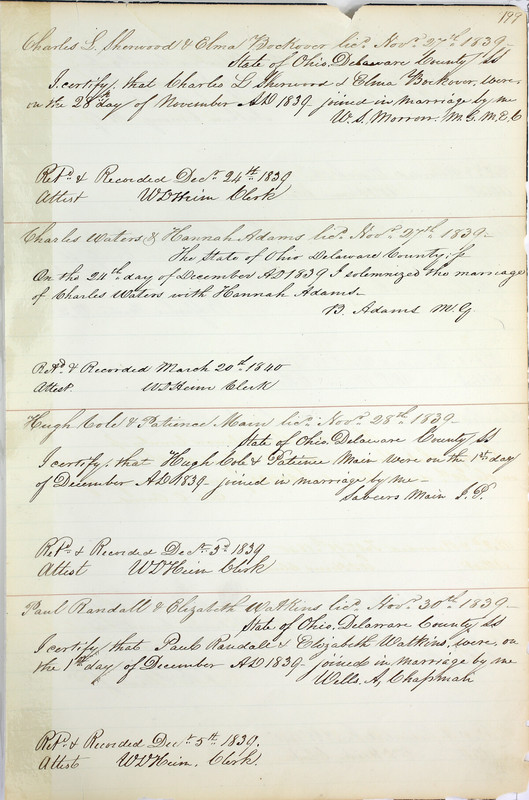 199
Charles L. Sherwood & Elma Bockover licd. Novr. 27th. 1839-
State of Ohio. Delaware County SS
I certify, that Charles L Sherwood & Elma Bockover, were,
on the 28th day of November AD 1839 joined in marriage by me
W. S. Morrow. M. G. M. E. C
Retd. & Recorded Decr. 24th. 1839
Attest W D Heim Clerk
Charles Waters & Hannah Adams licd. Novr. 27th. 1839-
The State of Ohio Delaware County; ss
On the 24th. day of December AD 1839 I solemnized the marriage
of Charles Waters with Hannah Adams-
B. Adams M. G
Retd. & Recorded March 20th. 1840
Attest. W D Heim Clerk
Hugh Cole & Patience Main licd. Novr. 28th. 1839-
State of Ohio. Delaware County SS
I certify, that Hugh Cole & Patience Main were on the 1st. day
of December AD 1839 joined in marriage by me-
Sabeers Main J. P.
Retd. & Recorded Decr. 3d. 1839
Attest W D Heim Clerk
Paul Randall & Elizabeth Watkins licd. Novr. 30th. 1839-
State of Ohio. Delaware County SS
I certify that Paul Randale & Elizabeth Watkins, were, on
the 1st day of December AD 1839 joined in marriage by me
Wells. A, Chapman
Retd. & Recorded Decr. 5th. 1839.
Attest W D Heim. Clerk.